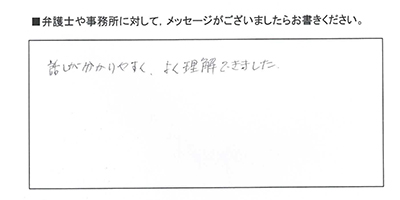 ■弁護士や事務所に対して，メッセージがございましたらお書きください。
話しが分かりやすく、よく理解できました。